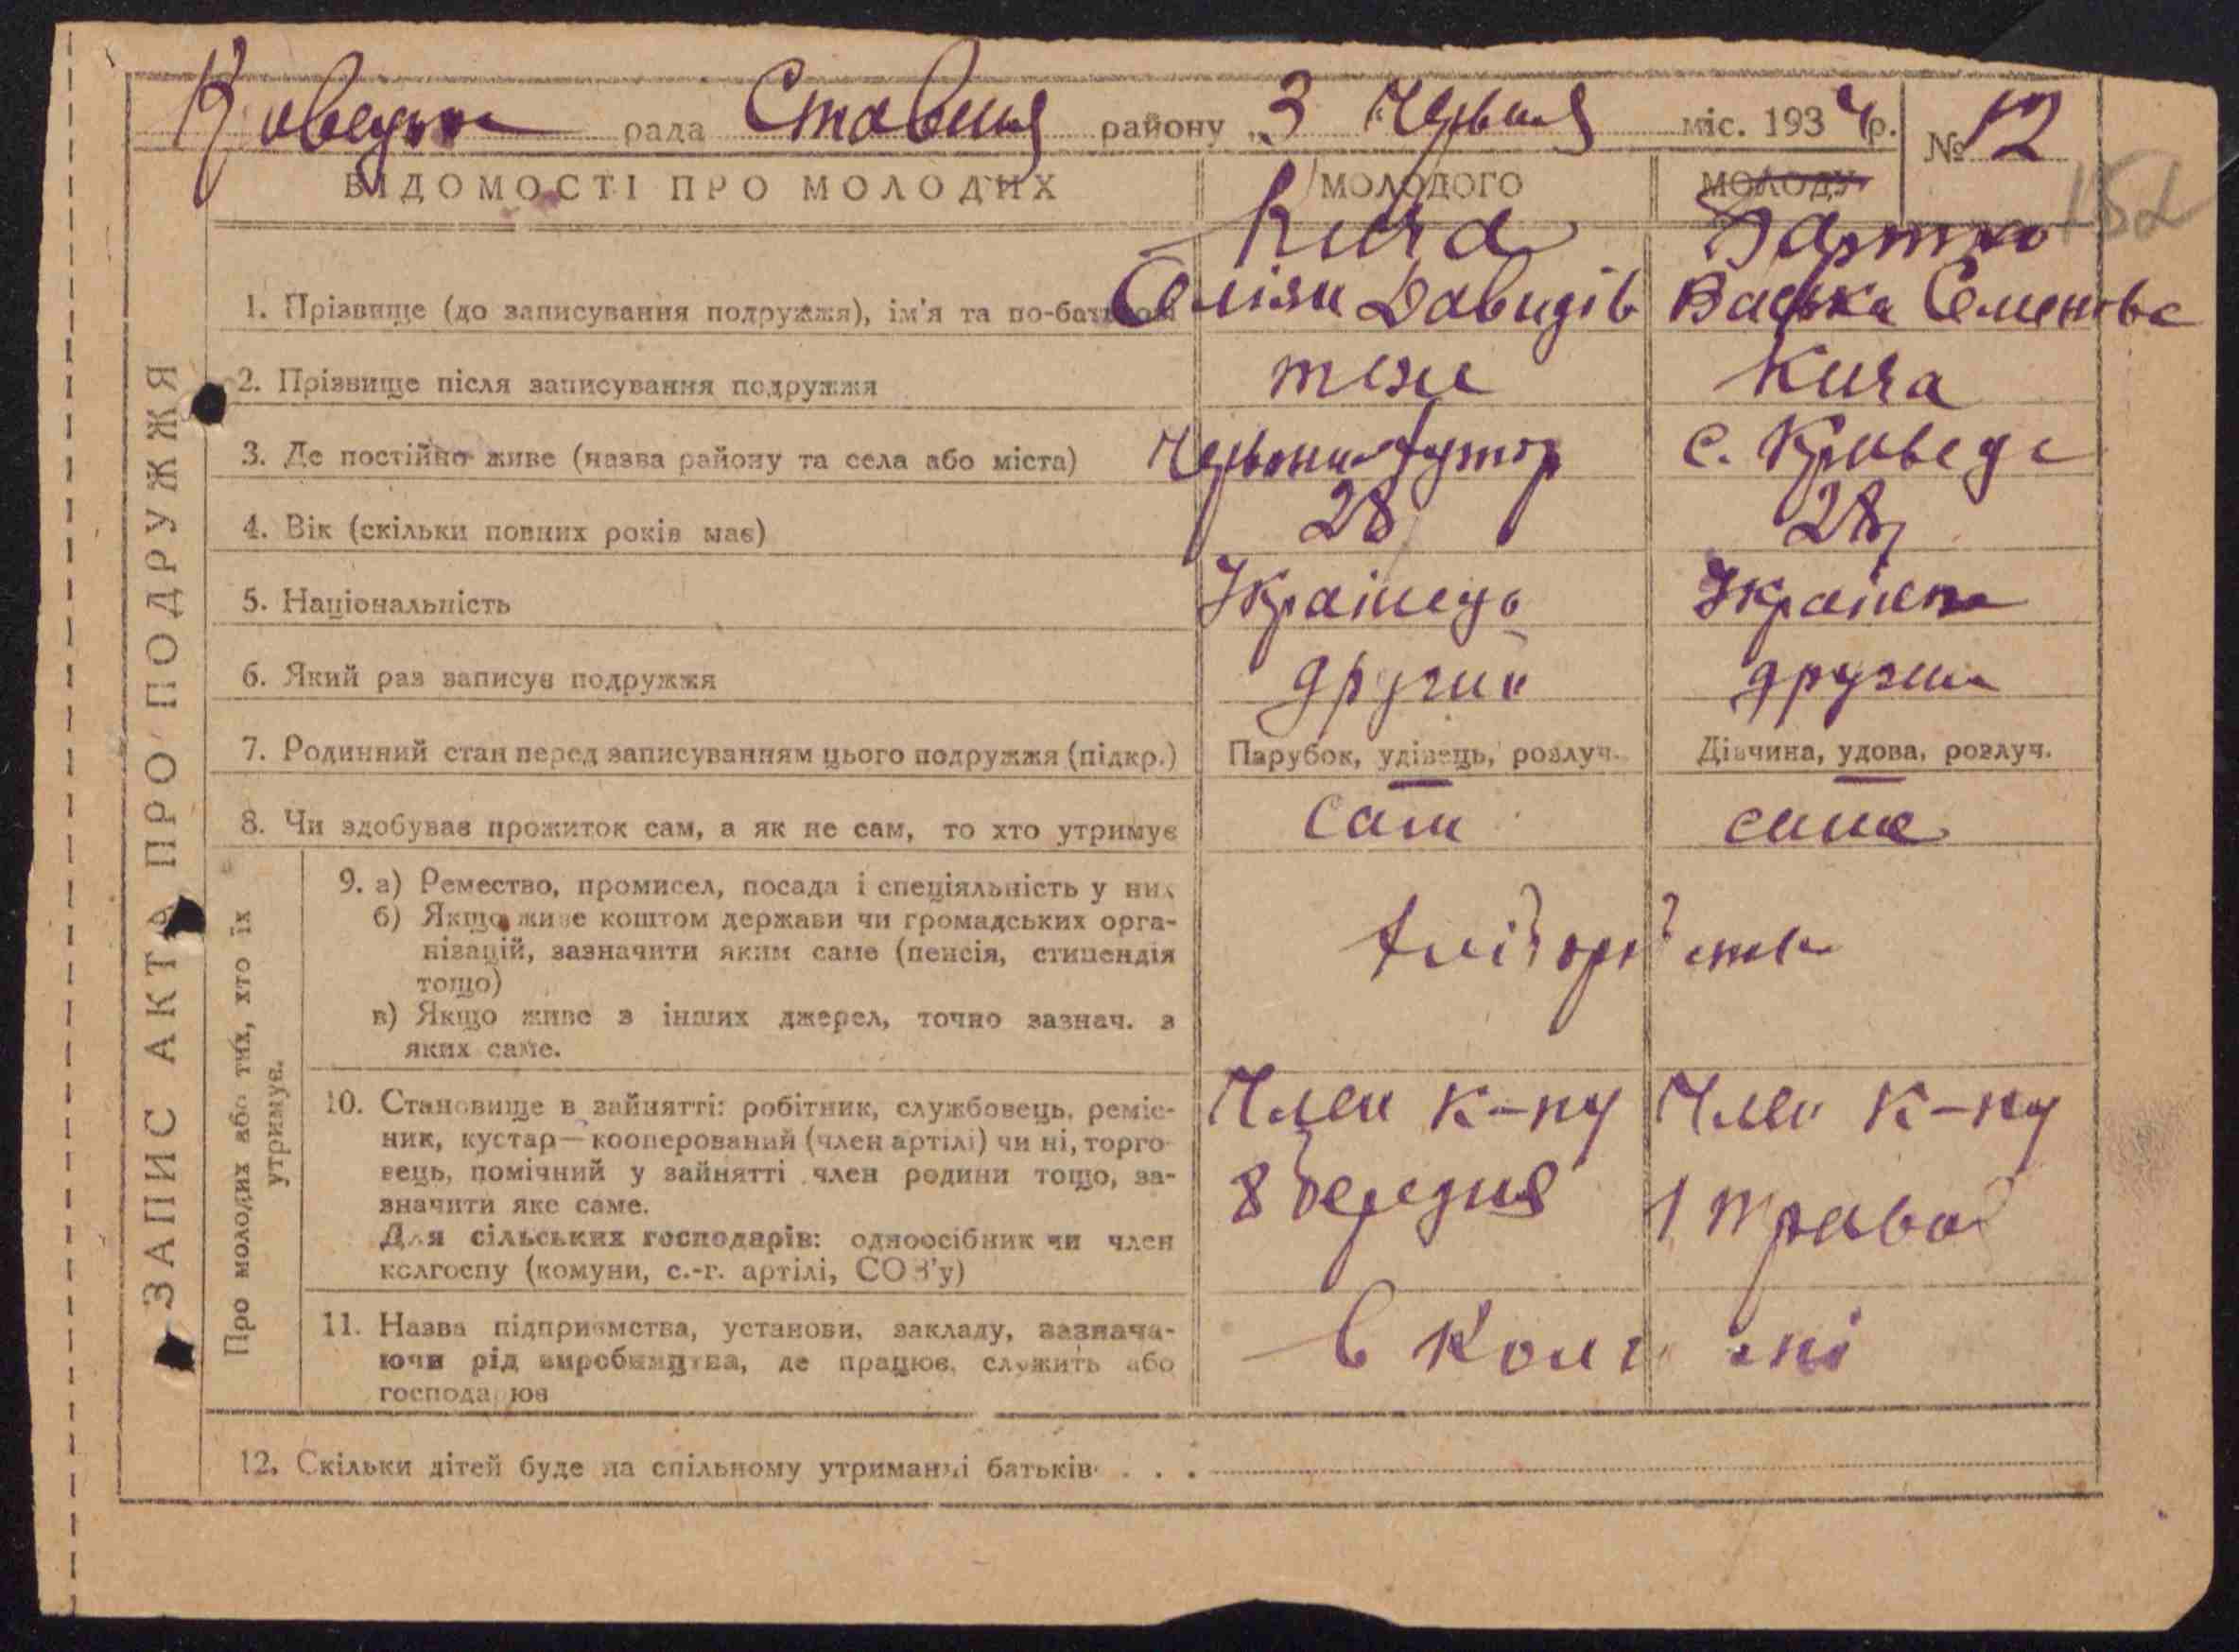 рада Ставищ району „3 Червня міс. 1934р. № 12
152
ВІДОМОСТІ ПРО МОЛОДИХ МОЛОДОГО МОЛОДУ
Кича
1. Прізвище (до записування подружжя), ім'я та по-батькові Оліян Давидів Васька Семенова
2. Прізвище після записування подружжя теж Кича
3. Де постійно живе (назва району та села або міста) Червоний хутор с. Криведа
4. Вік (скільки повних років має) 28 28
5. Національність Українець Українка
6. Який раз записує подружжя другий другий
7. Родинний стан перед записуванням цього подружжя (підкр.) Парубок, удівець, розлуч. Дівчина, удова, розлуч.
8. Чи здобував прожиток сам, а як не сам, то хто утримує сам сама
9. а) Ремество, промисел, посада і спеціяльність у них
б) Якщо живе коштом держави чи громадських орга-
нізацій, зазначити яким саме (пенсія, стипендія
тощо)
в) Якщо живе з інших джерел, точно зазнач. з
яких саме.
10. Становище в зайнятті: робітник, службовець, реміс-
ник, кустар—кооперований (член артілі) чи ні, торго-
вець, помічний у зайнятті член родини тощо, за-
значити яке саме.
Для сільських господарів: одноосібник чи член
колгоспу (комуни, с.-г. артілі, СОЗ'у)
Член к-пу
8 березня
Член к-пу
1 травня
11. Назва підприємства, установи, закладу, зазнача-
ючи рід виробництва, де працює, служить або
господарює
в колгоспі
12. Скільки дітей буде на спільному утриманні батьків . . .
ЗАПИС АКТА ПРО ПОДРУЖЖЯ
Про молодих або тих, хто їх
утримує.